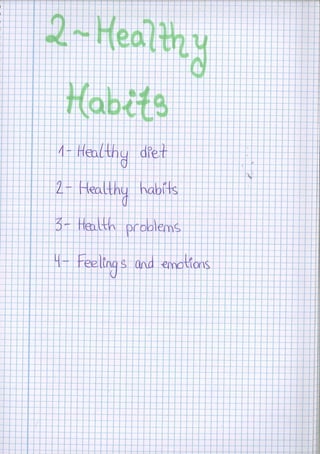 2-Healthy
Habits
1- Healthy diet
2- Healthy habits
3- Health problems
4- Feelings and emotions